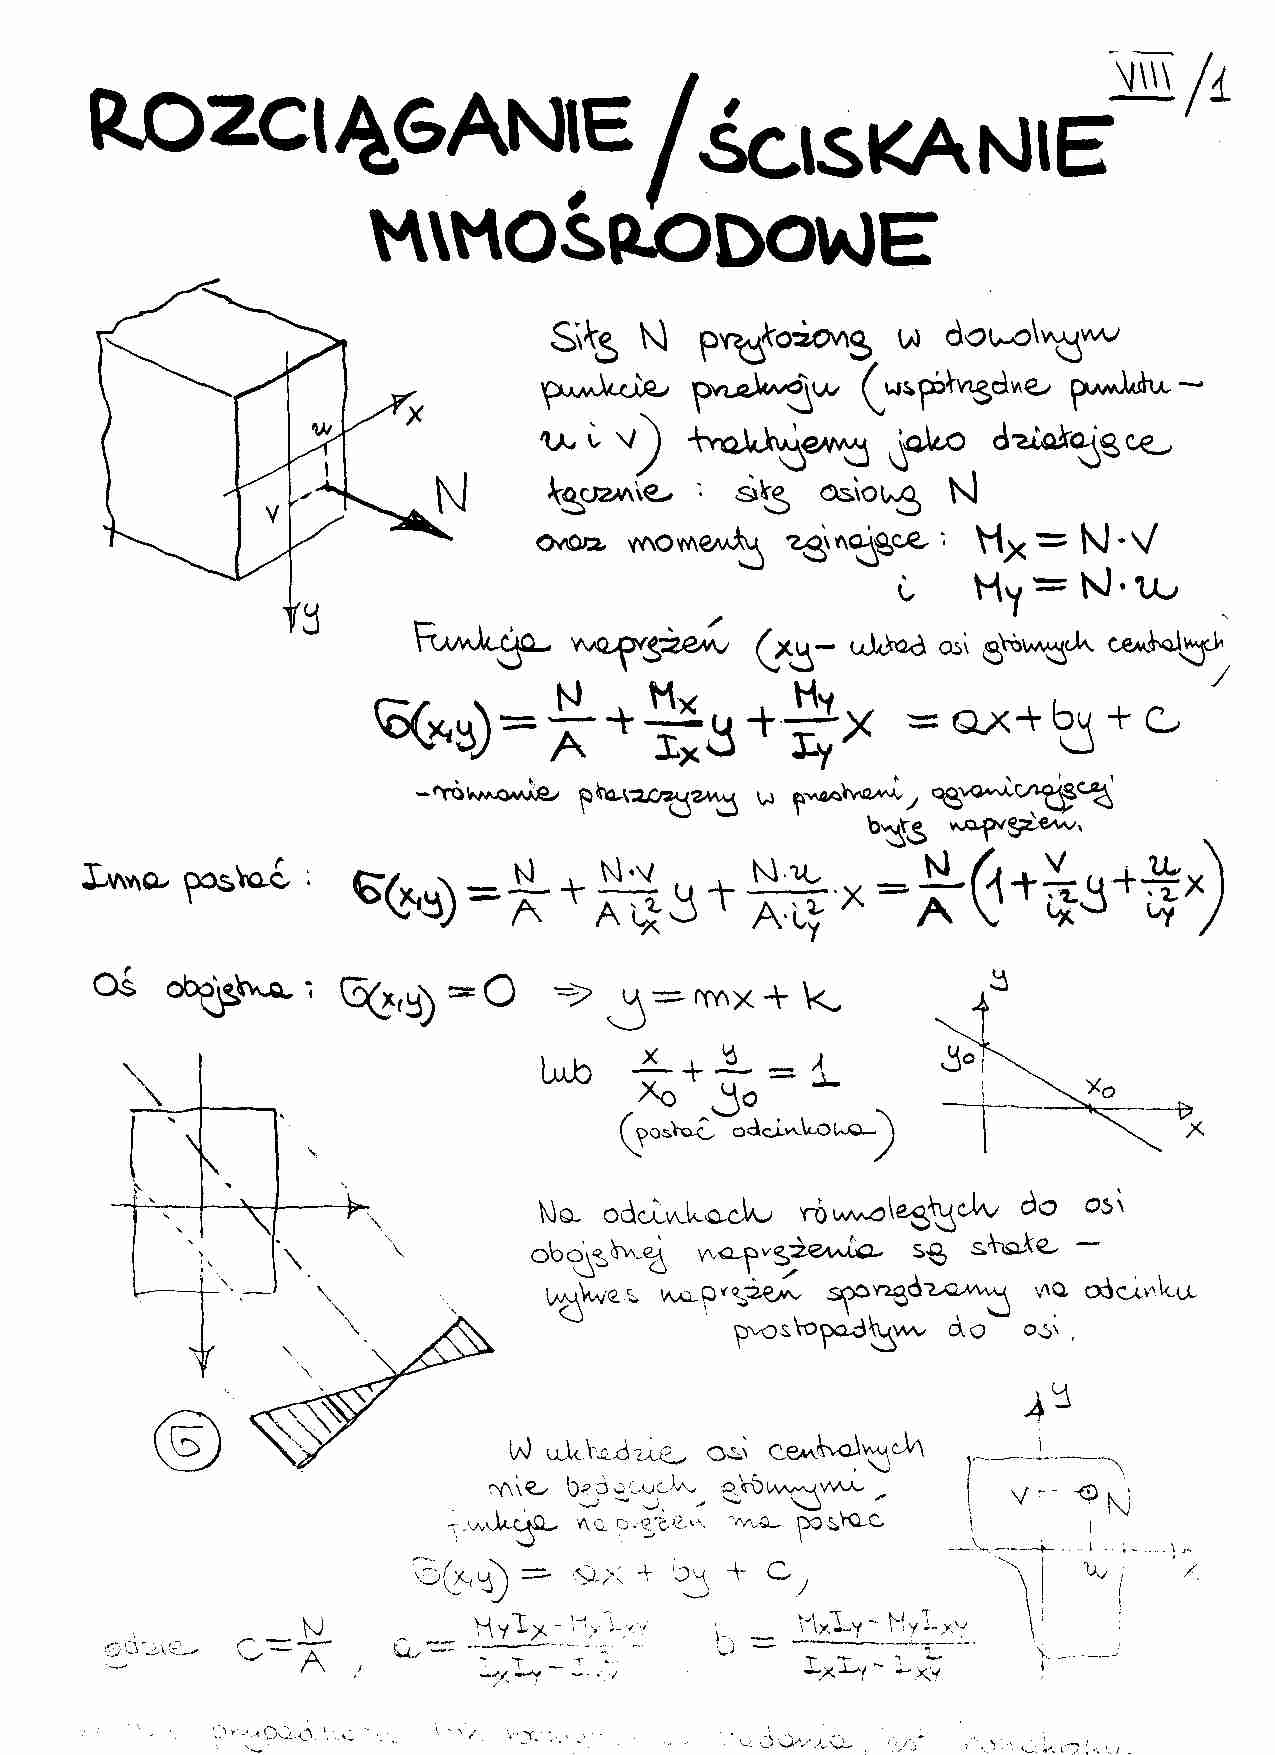 VIII/1
ROZCIĄGANIE/ŚCISKANIE
MIMOŚRODOWE
Siłę N przyłożoną w dowolnym
punkcie przekroju (współrzędne punktu –
u i v) traktujemy jako działające
łącznie : siłę osiową N
oraz momenty zginające : Mx = N·V
i My = N·u
x
u
N
v
y
Funkcja naprężeń (xy – układ osi głównych centralnych)
σ(x,y) = N/A + Mx/Ix y + My/Iy x = ax + by + c
– równanie płaszczyzny w przestrzeni, ograniczającej
bryłę naprężeń.
Inna postać : σ(x,y) = N/A + N·v/(A ix²) y + N·u/(A·iy²) · x = N/A (1 + v/ix² y + u/iy² x)
Oś obojętna : σ(x,y) = 0 ⇒ y = mx + k
lub x/x0 + y/y0 = 1
(postać odcinkowa)
y
y0
x0
x
Na odcinkach równoległych do osi
obojętnej naprężenia są stałe –
wykres naprężeń sporządzamy na odcinku
prostopadłym do osi.
σ
W układzie osi centralnych
nie będących głównymi,
funkcja naprężeń ma postać
σ(x,y) = ax + by + c,
y
v
N
u
x
gdzie c = N/A , a = (MyIx - MxIxy)/(IxIy - Ixy²) b = (MxIy - MyIxy)/(IxIy - Ixy²)